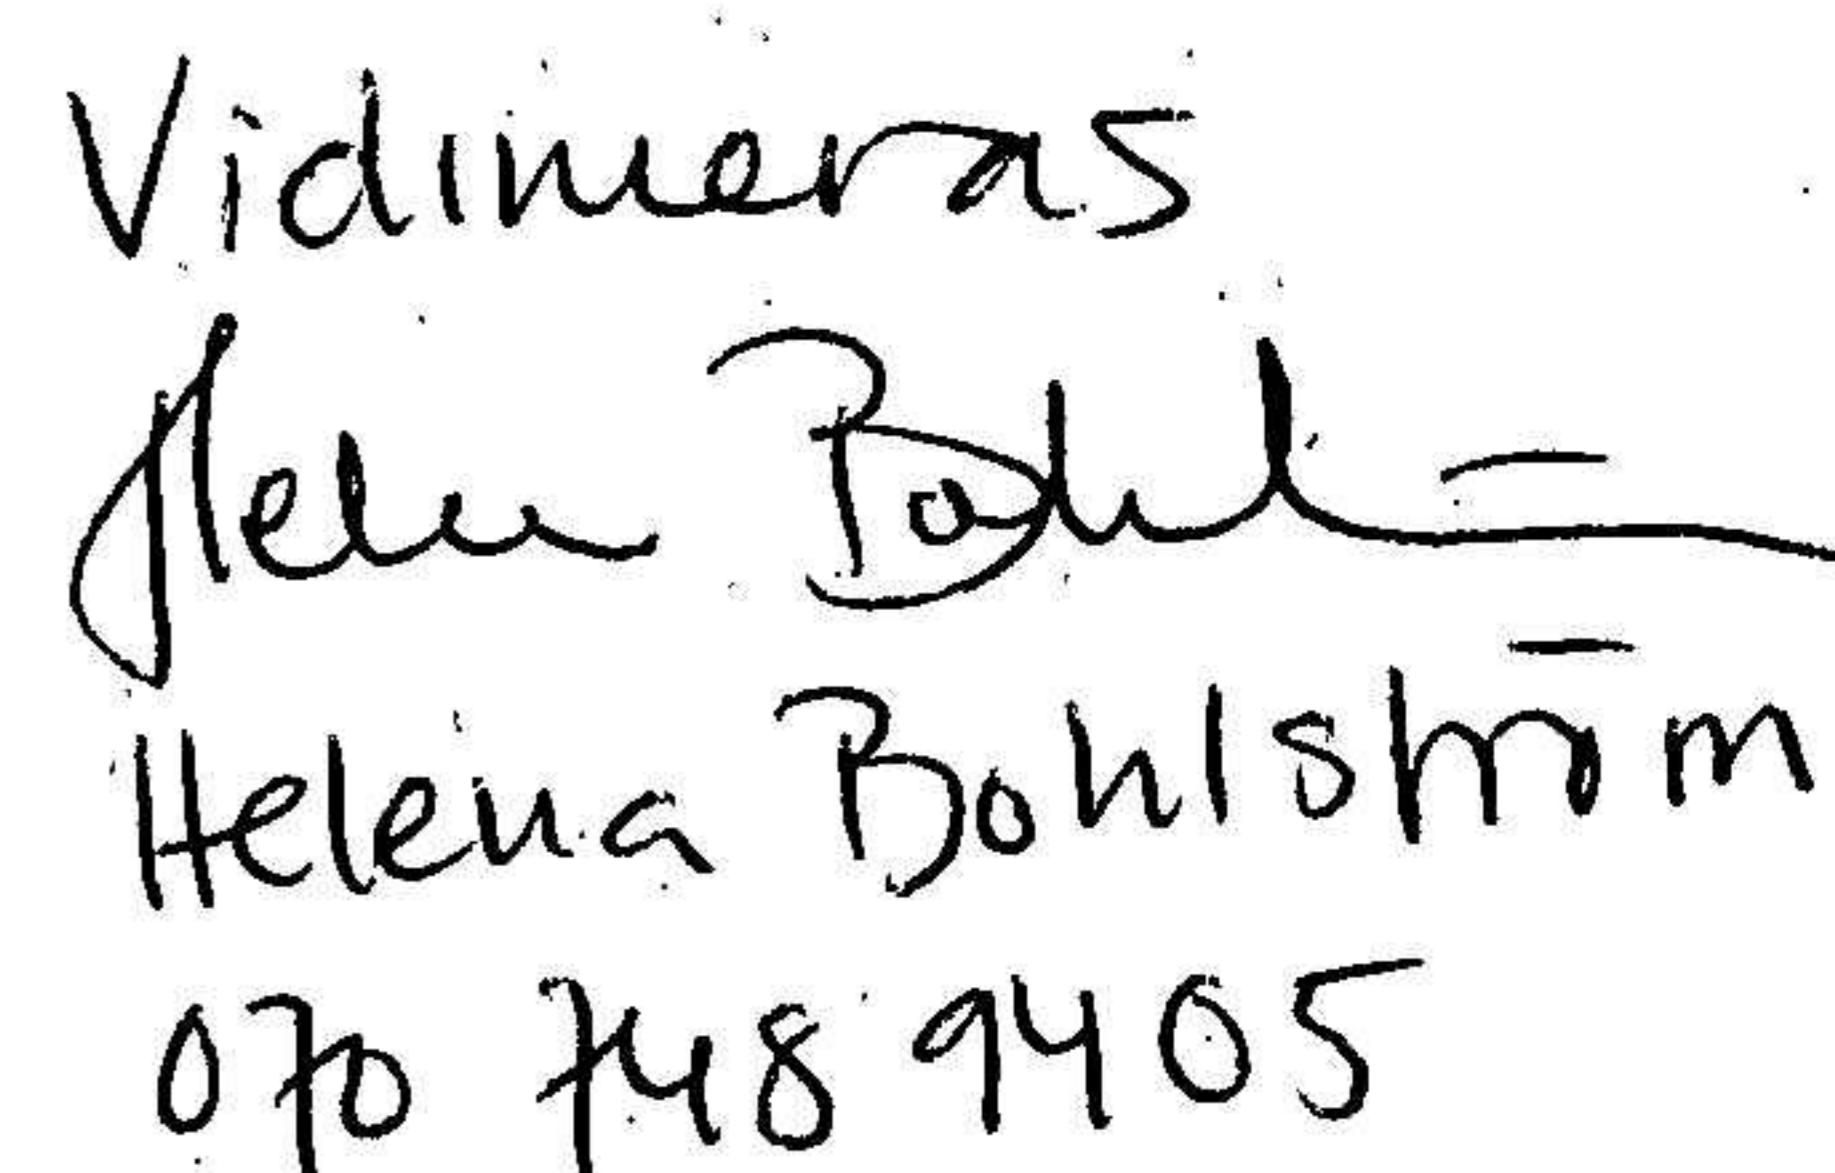 Vidimeras
Helena Bohlström
Helena Bohlström
070 748 9405